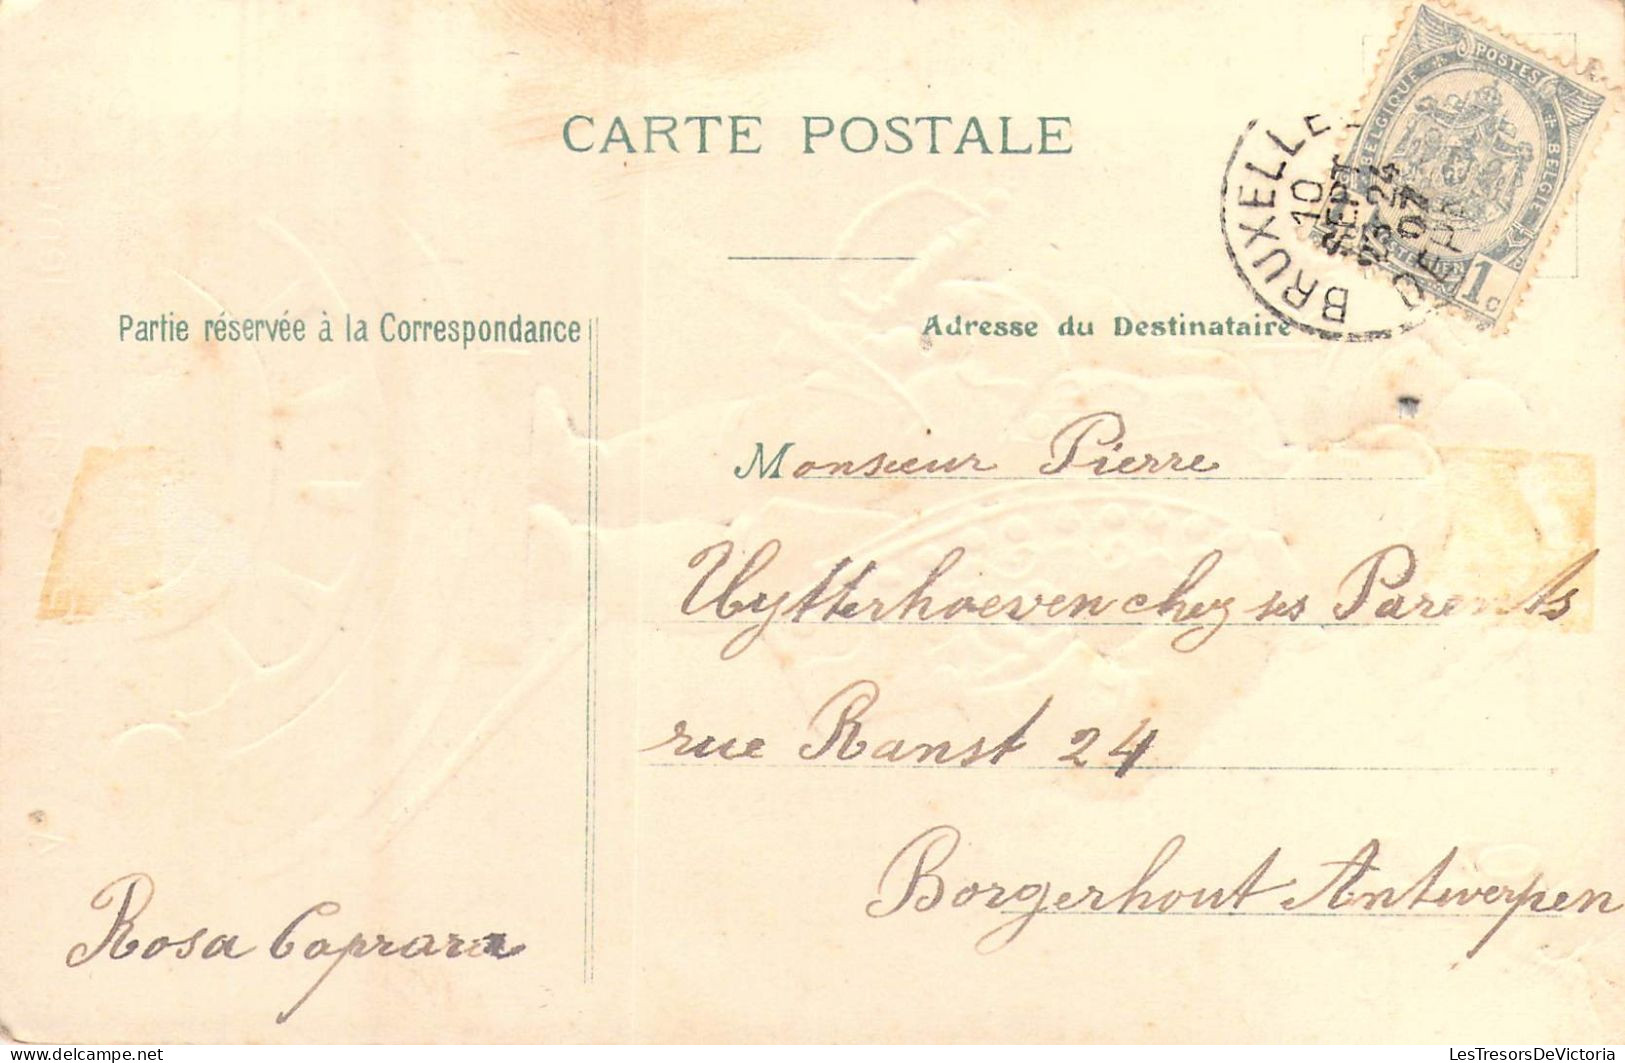 CARTE POSTALE
POSTES
BELGIQUE
BELGIE
1c
BRUXELLE
10
SEPT
24
07
DEP
Partie réservée à la Correspondance
Adresse du Destinataire
Monsieur Pierre
Uytterhoeven chez ses Parents
rue Ranst 24
Borgerhout Antwerpen
Rosa Caprara
LesTresorsDeVictoria